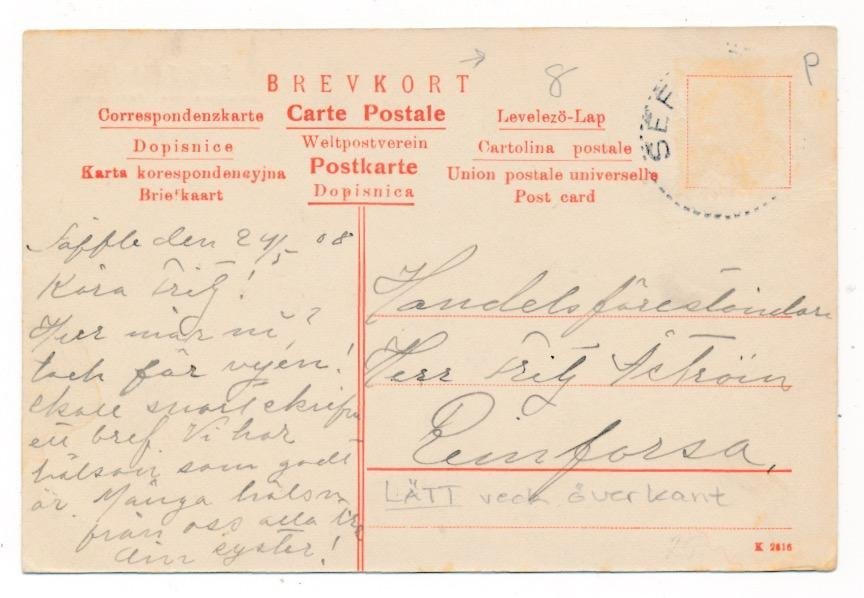 BREVKORT
8
P
Correspondenzkarte
Carte Postale
Levelező-Lap
Dopisnice
Weltpostverein
Cartolina postale
Karta korespondencyjna
Postkarte
Union postale universelle
Briefkaart
Dopisnica
Post card
SEF
Säffle den 24/5 08
Kära Fritz!
Hur mår ni?
tack för vyen!
skall snart skrifva
ett bref. Vi har
hälsan som godt
är. Många hälsn
från oss alla
din syster!
Handelsföreståndare
Herr Fritz Åström
Rimforsa.
LÄTT veck överkant
K 2616